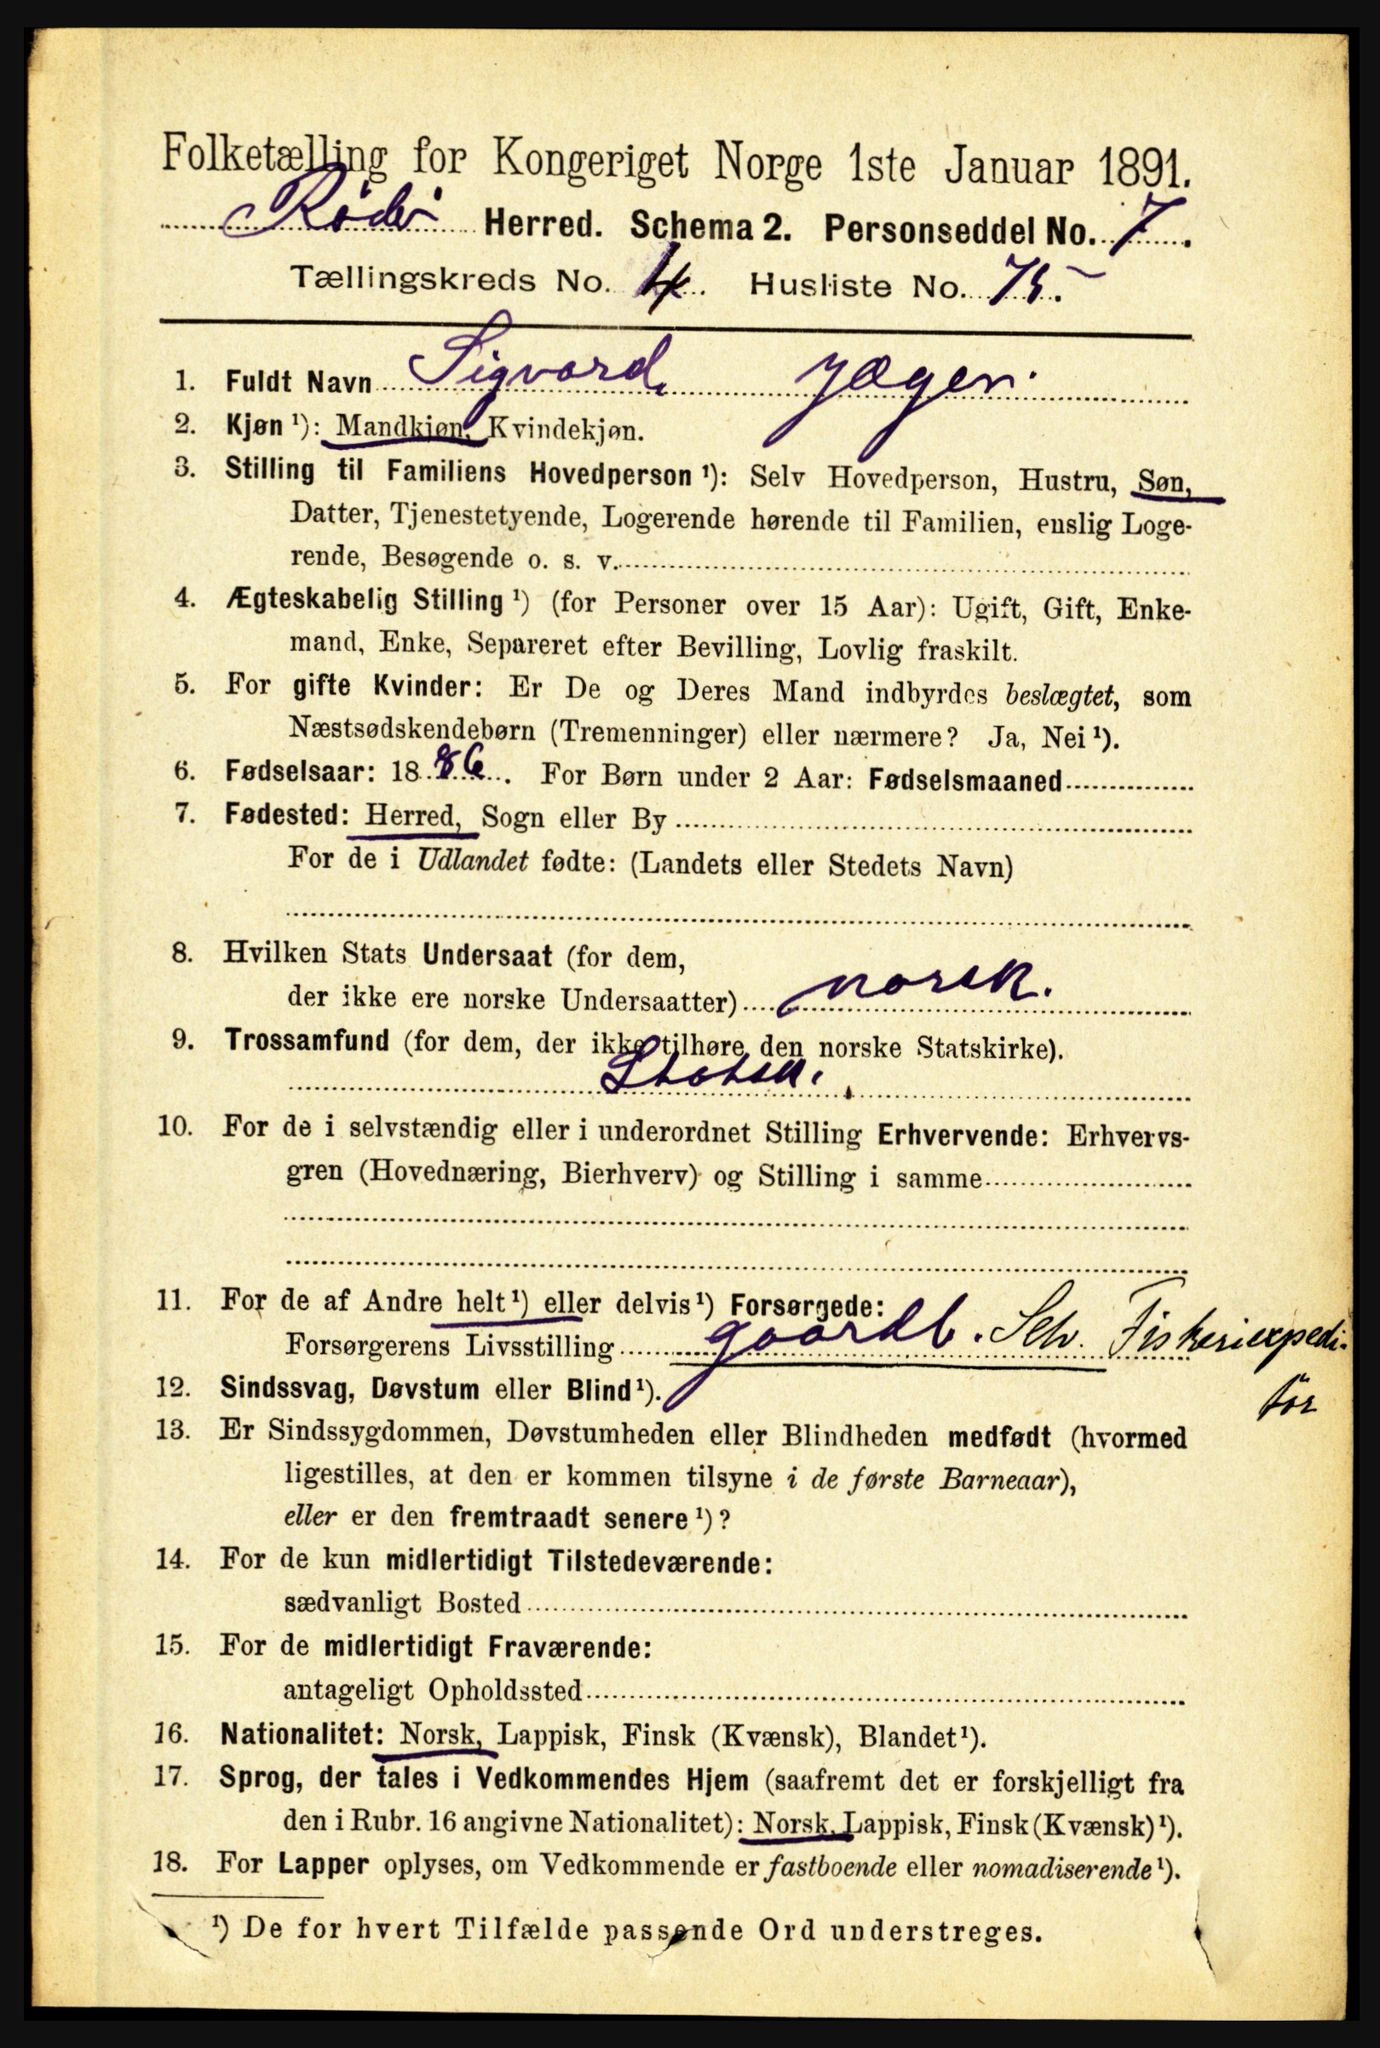 Folketælling for Kongeriget Norge 1ste Januar 1891.
Rödö Herred. Schema 2. Personseddel No. 7.
Tællingskreds No. 4. Husliste No. 75.
1. Fuldt Navn Sigvard Jæger.
2. Kjøn ¹): Mandkjøn, Kvindekjøn.
3. Stilling til Familiens Hovedperson ¹): Selv Hovedperson, Hustru, Søn,
Datter, Tjenestetyende, Logerende hørende til Familien, enslig Loge-
rende, Besøgende o. s. v.
4. Ægteskabelig Stilling ¹) (for Personer over 15 Aar): Ugift, Gift, Enke-
mand, Enke, Separeret efter Bevilling, Lovlig fraskilt.
5. For gifte Kvinder: Er De og Deres Mand indbyrdes beslægtet, som
Næstsødskendebørn (Tremenninger) eller nærmere? Ja, Nei ¹).
6. Fødselsaar: 1886. For Børn under 2 Aar: Fødselsmaaned
7. Fødested: Herred, Sogn eller By
For de i Udlandet fødte: (Landets eller Stedets Navn)
8. Hvilken Stats Undersaat (for dem,
der ikke ere norske Undersaatter) norsk.
9. Trossamfund (for dem, der ikke tilhøre den norske Statskirke).
Statsk.
10. For de i selvstændig eller i underordnet Stilling Erhvervende: Erhvervs-
gren (Hovednæring, Bierhverv) og Stilling i samme
11. For de af Andre helt ¹) eller delvis ¹) Forsørgede:
Forsørgerens Livsstilling gaardb. Selv. Fiskeriexpedi-
tör
12. Sindssvag, Døvstum eller Blind ¹).
13. Er Sindssygdommen, Døvstumheden eller Blindheden medfødt (hvormed
ligestilles, at den er kommen tilsyne i de første Barneaar),
eller er den fremtraadt senere ¹)?
14. For de kun midlertidigt Tilstedeværende:
sædvanligt Bosted
15. For de midlertidigt Fraværende:
antageligt Opholdssted
16. Nationalitet: Norsk, Lappisk, Finsk (Kvænsk), Blandet ¹).
17. Sprog, der tales i Vedkommendes Hjem (saafremt det er forskjelligt fra
den i Rubr. 16 angivne Nationalitet): Norsk, Lappisk, Finsk (Kvænsk) ¹).
18. For Lapper oplyses, om Vedkommende er fastboende eller nomadiserende ¹).
¹) De for hvert Tilfælde passende Ord understreges.